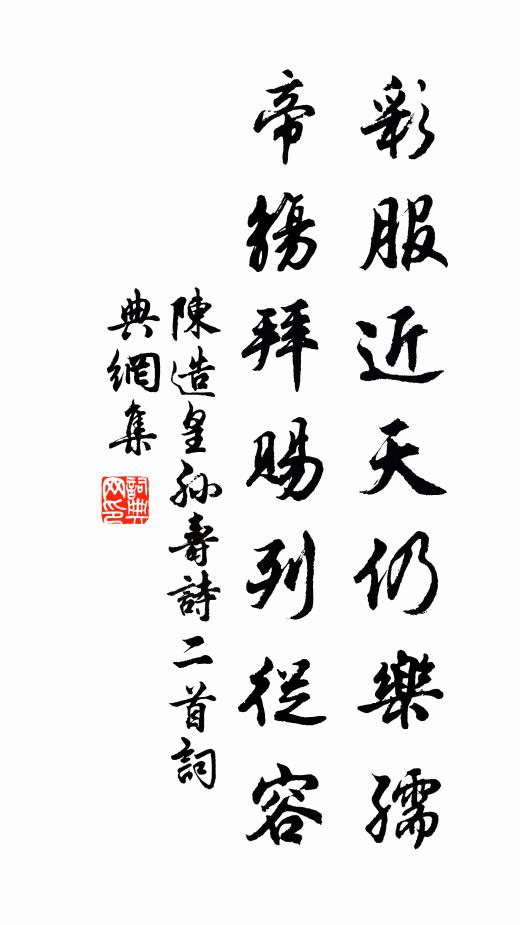 彩服近天仍樂孺
帝觴拜賜列從容
陳造皇孫壽詩二首詞
典網集
詞典網印